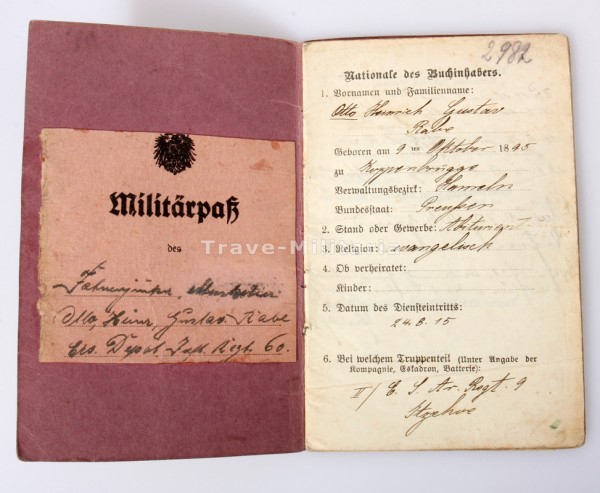 Militärpaß
des
Fahnenjunker,
Otto, Heinr, Gustav Rabe
Ers. Depot Inft. Regt. 60.
2982
Nationale des Buchinhabers.
1. Vornamen und Familienname:
Otto Heinrich Gustav
Rabe
Geboren am 9 ten Oktober 1895
zu
Verwaltungsbezirk: Hameln
Bundesstaat: Preußen
2. Stand oder Gewerbe: Abiturient
3. Religion: evangelisch
4. Ob verheiratet:
Kinder:
5. Datum des Diensteintritts:
24.8.15
6. Bei welchem Truppenteil (Unter Angabe der
Kompagnie, Eskadron, Batterie):
II/ E. F. Ar. Regt. 9
Itzehoe